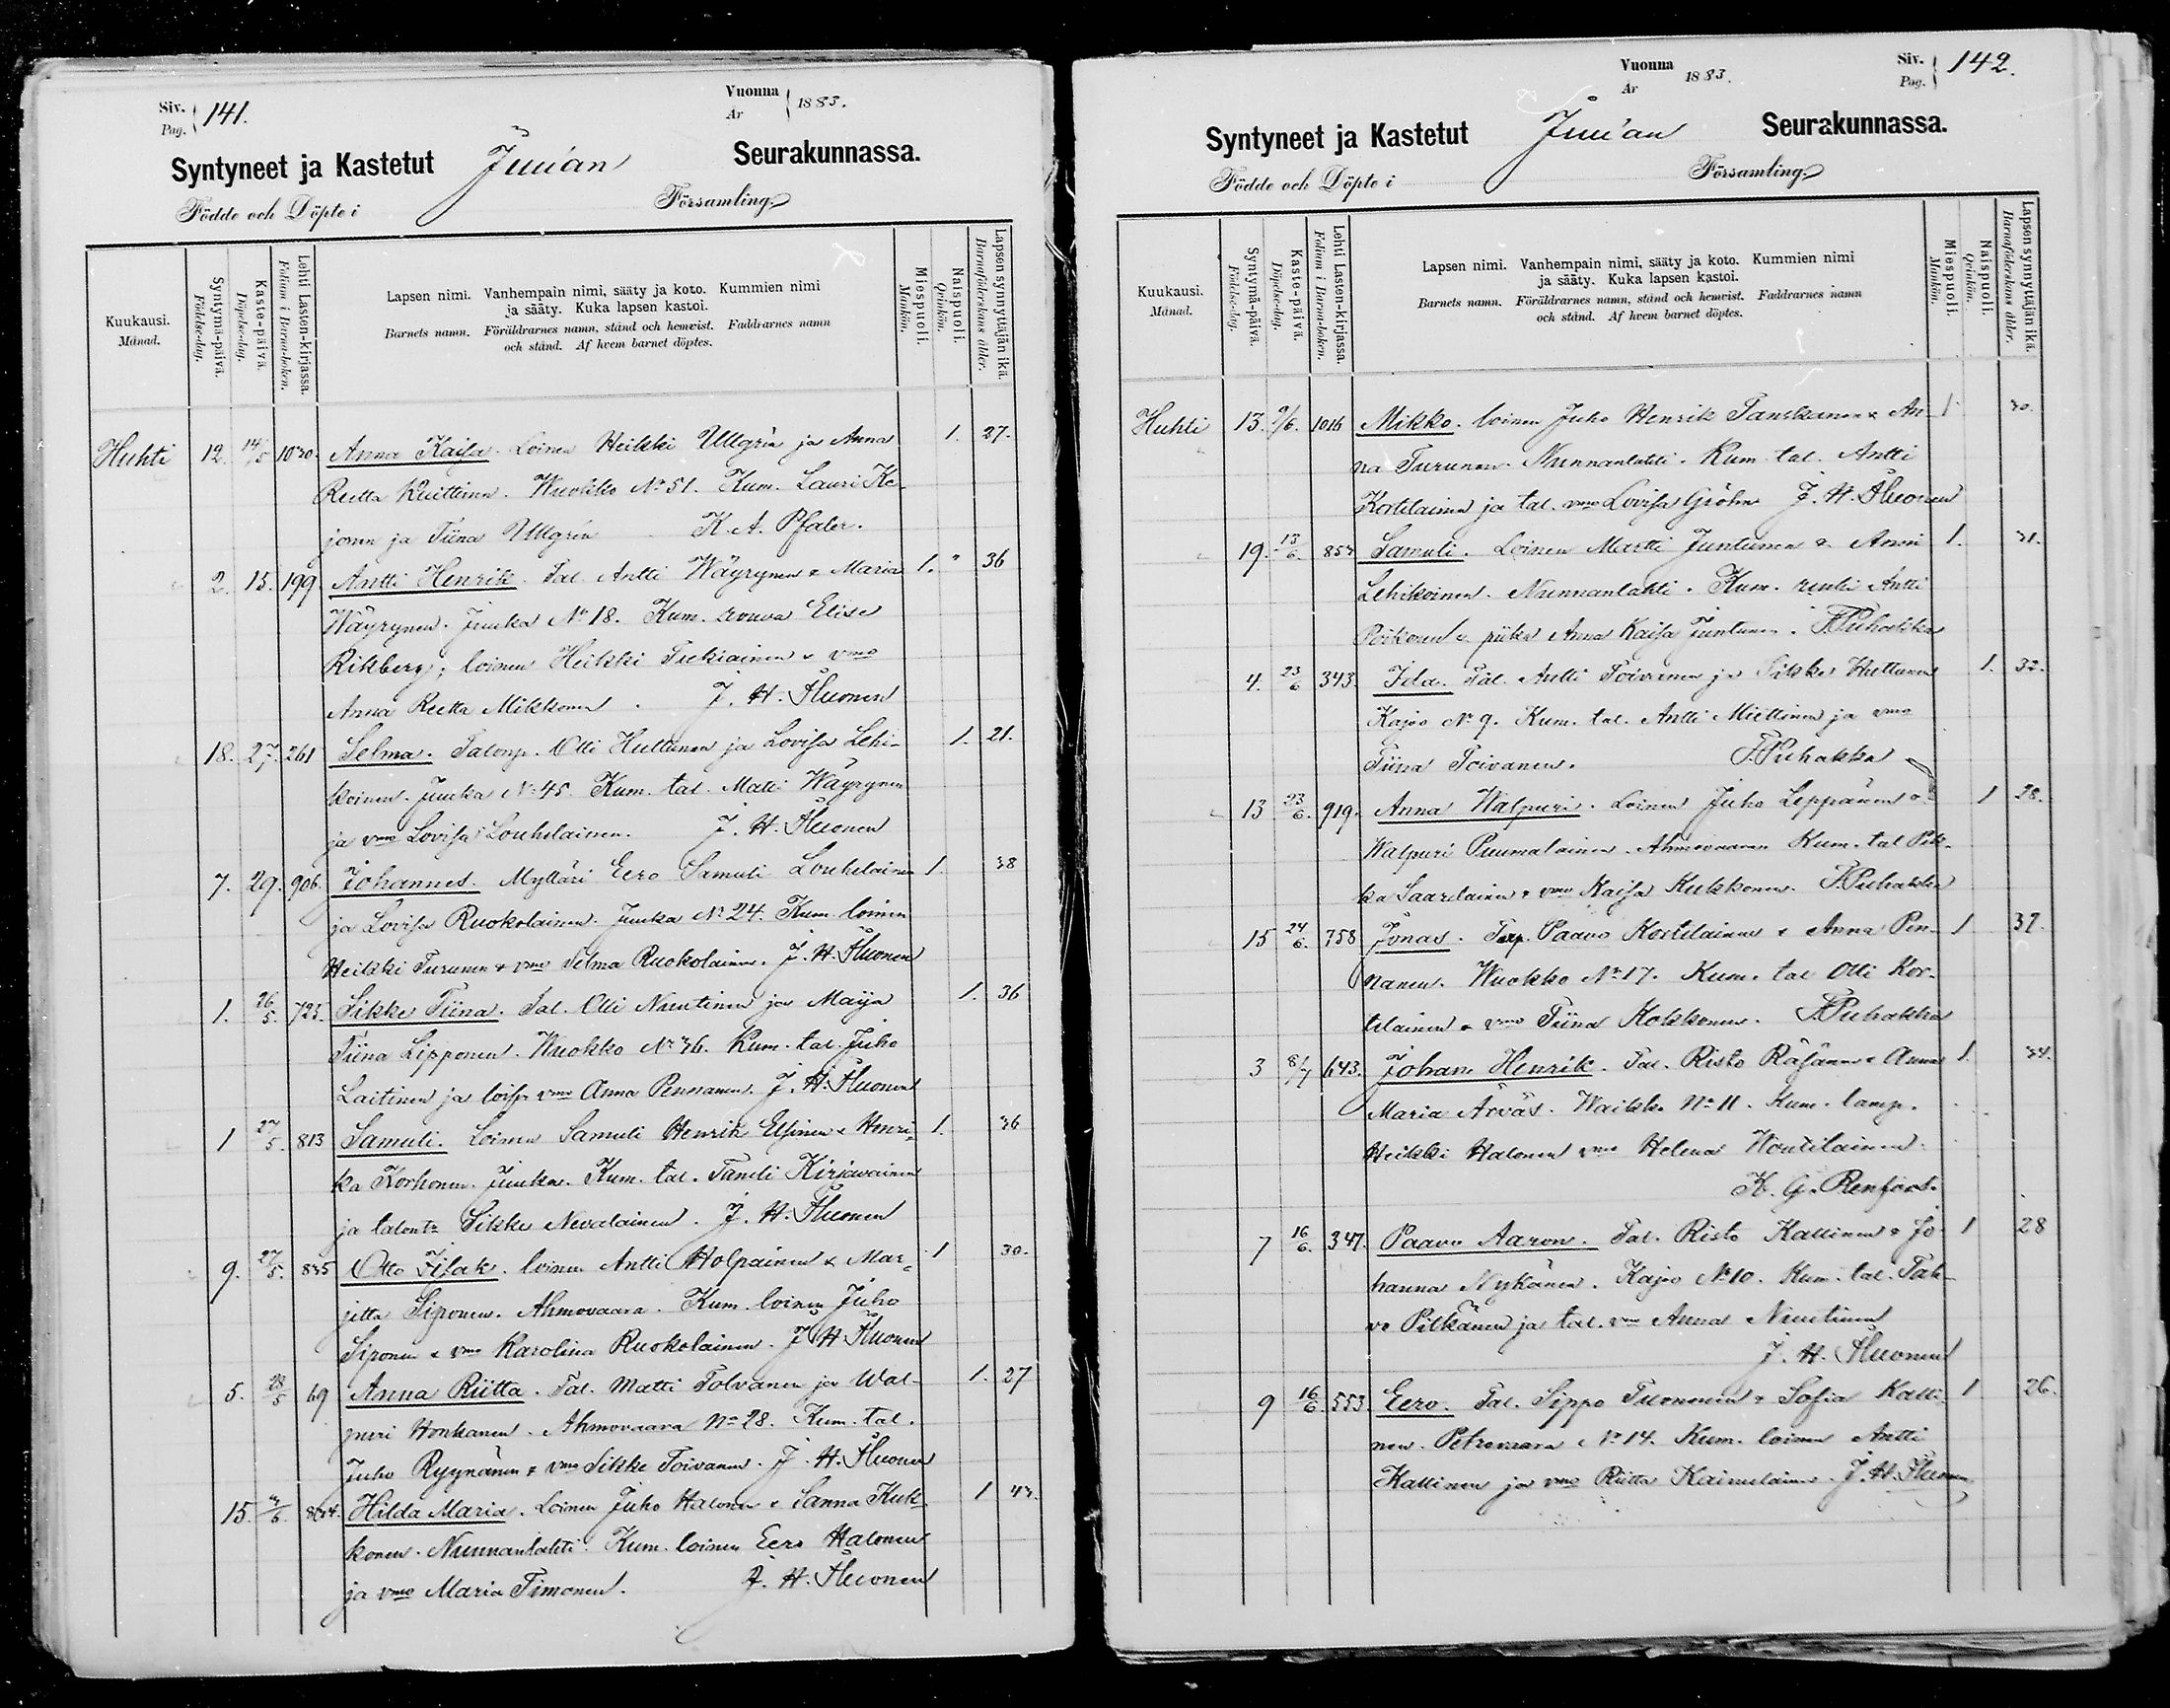 Siv. Pag. 141.
Vuonna År 1883.
Syntyneet ja Kastetut Juuan Seurakunnassa.
Födde och Döpte i Församling.
Kuukausi. Månad.
Syntymä-päivä. Födelse-dag.
Kaste-päivä. Döpelse-dag.
Lehti Lasten-kirjassa. Folium i Barna-boken.
Lapsen nimi. Vanhempain nimi, sääty ja koto. Kummien nimi
ja sääty. Kuka lapsen kastoi.
Barnets namn. Föräldrarnes namn, stånd och hemvist. Faddrarnes namn
och stånd. Af hvem barnet döptes.
Miespuoli. Mankön.
Naispuoli. Qvinkön.
Lapsen synnyttäjän ikä. Barnaföderskans ålder.
Huhti 12. 14/5 1030. Anna Kaisa. Loinen Heikki Ullgrén ja Anna 1. 27.
Reetta Kuittinen. Wuokko No 51. Kum. Lauri Ke-
jonen ja Tiina Ullgrén K. A. Pfaler.
2. 15. 199. Antti Henrik. Tal. Antti Wäyrynen & Maria 1. " 36
Wäyrynen. Juuka No 18. Kum. rouva Elise
Rikberg; loinen Heikki Turkiainen & vmo
Anna Reetta Mikkonen. J. H. Huonen
18. 27. 261 Selma. Talonp. Olli Huttunen ja Lovisa Lehi- 1. 21.
koinen. Juuka No 45. Kum. tal. Matti Wäyrynen
ja vmo Lovisa Louhelainen. J. H. Huonen
7. 29. 906. Johannes. Mylläri Eero Samuli Louhelainen 1. 38
ja Lovisa Ruokolainen. Juuka No 24. Kum. loinen
Heikki Turunen & vmo Selma Ruokolainen. J. H. Huonen
1. 26/5. 725. Sikke Tiina. Tal. Olli Nuutinen ja Maija 1. 36
Tiina Lipponen. Wuokko No 36. Kum. tal. Juho
Laitinen ja vmo Anna Pennanen. J. H. Huonen
1 27/5. 813 Samuli. Loinen Samuli Henrik Elsinen & Henri- 1. 36
ka Korhonen. Juuka. Kum. tal. Taneli Kirjavainen
ja talontr Sikke Nevalainen. J. H. Huonen
9. 27/5. 835 Otto Isak. loinen Antti Holpainen & Mar- 1 30.
jetta Siponen. Ahmovaara. Kum. loinen Juho
Siponen & vmo Karolina Ruokolainen. J. H. Huonen
5. 28/5 69 Anna Riitta. Tal. Matti Tolvanen ja Wal- 1. 27
puri Honkanen. Ahmovaara No 28. Kum. tal.
Juho Ryynänen & vmo Sikke Toivanen. J. H. Huonen
15. /6. Hilda Maria. Loinen Juho Halonen & Sanna Kuk- 1 43.
konen. Nunnanlahti. Kum. loinen Eero Halonen
ja vmo Maria Timonen. J. H. Huonen
Vuonna År 1883.
Siv. Pag. 142.
Syntyneet ja Kastetut Juuan Seurakunnassa.
Födde och Döpte i Församling.
Kuukausi. Månad.
Syntymä-päivä. Födelse-dag.
Kaste-päivä. Döpelse-dag.
Lehti Lasten-kirjassa. Folium i Barna-boken.
Lapsen nimi. Vanhempain nimi, sääty ja koto. Kummien nimi
ja sääty. Kuka lapsen kastoi.
Barnets namn. Föräldrarnes namn, stånd och hemvist. Faddrarnes namn
och stånd. Af hvem barnet döptes.
Miespuoli. Mankön.
Naispuoli. Qvinkön.
Lapsen synnyttäjän ikä. Barnaföderskans ålder.
Huhti 13. 9/6. 1016 Mikko. loinen Juho Henrik Tanskanen & An- 1 30.
na Turunen. Nunnanlahti. Kum. tal. Antti
Kortelainen ja tal. vmo Lovisa Gröhn J. H. Huonen
19. 13/6. 853 Samuli. Loinen Martti Juntunen & Anni 1. 31.
Lehikoinen. Nunnanlahti. Kum. renki Antti
Poikonen & piika Anna Kaisa Juntunen. F. Puhakka
4. 23/6 343. Ida. Tal. Antti Toivanen ja Sikke Huttunen 1. 32.
Kajoo No 9. Kum. tal. Antti Miettinen ja vmo
Tiina Toivanen. F. Puhakka
13 23/6. 919. Anna Walpuri. Loinen Juho Leppänen & 1 28.
Walpuri Puumalainen. Ahmovaara Kum. tal Pek-
ka Saarelainen & vmo Kaisa Kukkonen. F. Puhakka
15 24/6. 758 Jonas. Talp. Paavo Kortelainen & Anna Pen- 1 37.
nanen. Wuokko No 17. Kum. tal Olli Kor-
telainen & vmo Tiina Kokkonen. F. Puhakka
3 8/7 643. Johan Henrik. Tal. Risto Räsänen & Anna 1. 34.
Maria Arväs. Waikko No 11. Kum. lamp.
Heikki Halonen vmo Helena Woutilainen.
K. G. Renfors.
7 16/6. 347. Paavo Aaron. Tal. Risto Kallinen & Jo- 1 28
hanna Nykänen. Kajoo No 10. Kum. tal. Tah-
vo Pitkänen ja tal. vmo Anna Nuutinen
J. H. Huonen
9 16/6. 553. Eero. Tal. Sippo Tuononen & Sofia Kalli- 1 26.
nen. Petrovaara No 14. Kum. loinen Antti
Kallinen ja vmo Riitta Kaimulainen. J. H. Huonen